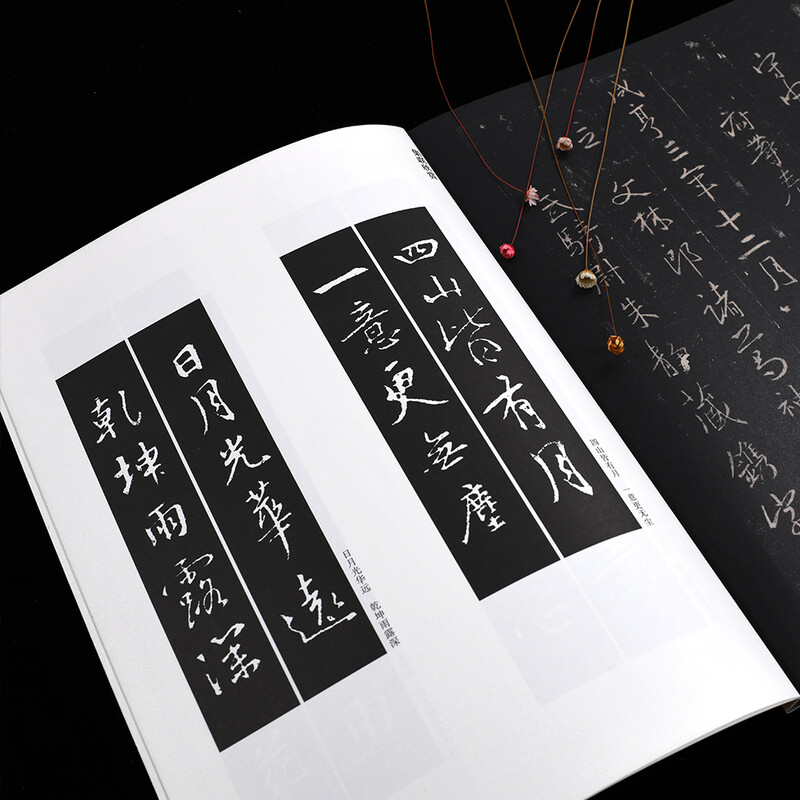 集联欣赏
四山皆有月
一意更无塵
四山皆有月　一意更无尘
日月光華遠
乾坤雨露深
日月光华远　乾坤雨露深
守
府
咸亨三年十二月
立　文林郎諸葛神
武騎尉朱靜藏鐫字